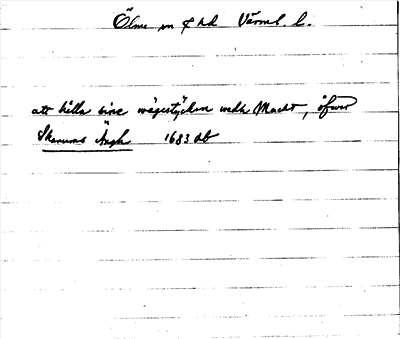 Ölme sn o hd Värml. l.
att hålla sine wägestÿcken medh Macht, öfwer
Skanums Ängh 1683 db